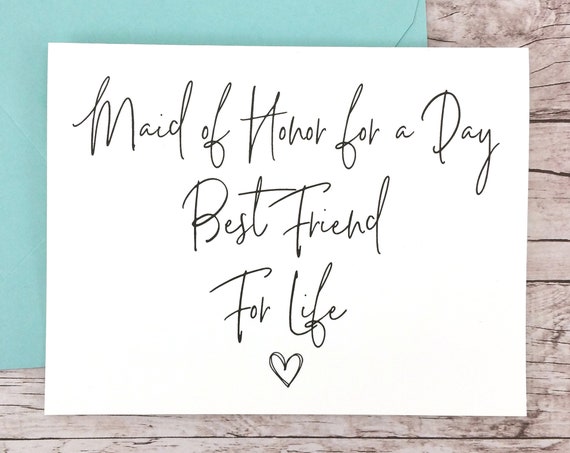 Maid of Honor for a Day
Best Friend
For Life